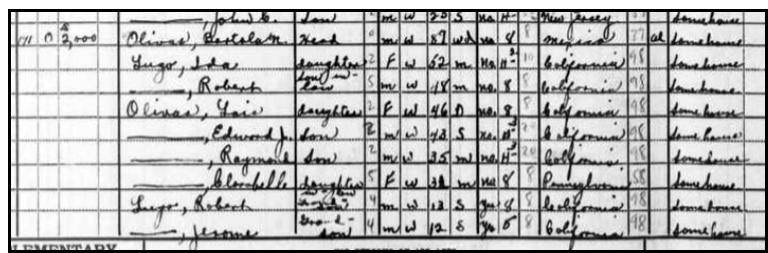 ———, John C. Son 2 m w 20 S no H- New Jersey Same house
111 O 2,000 Olivas, Bartola M. Head 0 m w 87 wd no 8 8 Mexico 77 al Same house
Lugo, Ida daughter 2 F w 52 m No H-2 10 California 98 Same house
———, Robert Son-in-law 5 m w 48 m no. 8 8 California 98 Same house
Olivas, Lois daughter 2 F w 46 D no. 8 8 California 98 Same house
———, Edward J. Son 2 m w 43 S no. H-3 California 98 Same house
———, Raymond Son 2 m w 35 m no. H-3 California 98 Same house
———, Clarabelle daughter in law 5 F w 32 m no 8 8 Pennsylvania 58 Same house
Lugo, Robert Grand-son 4 m w 13 S yes 8 California 98 Same house
———, Jerome Grand-son 4 m w 12 S yes 5 8 California 98 Same house